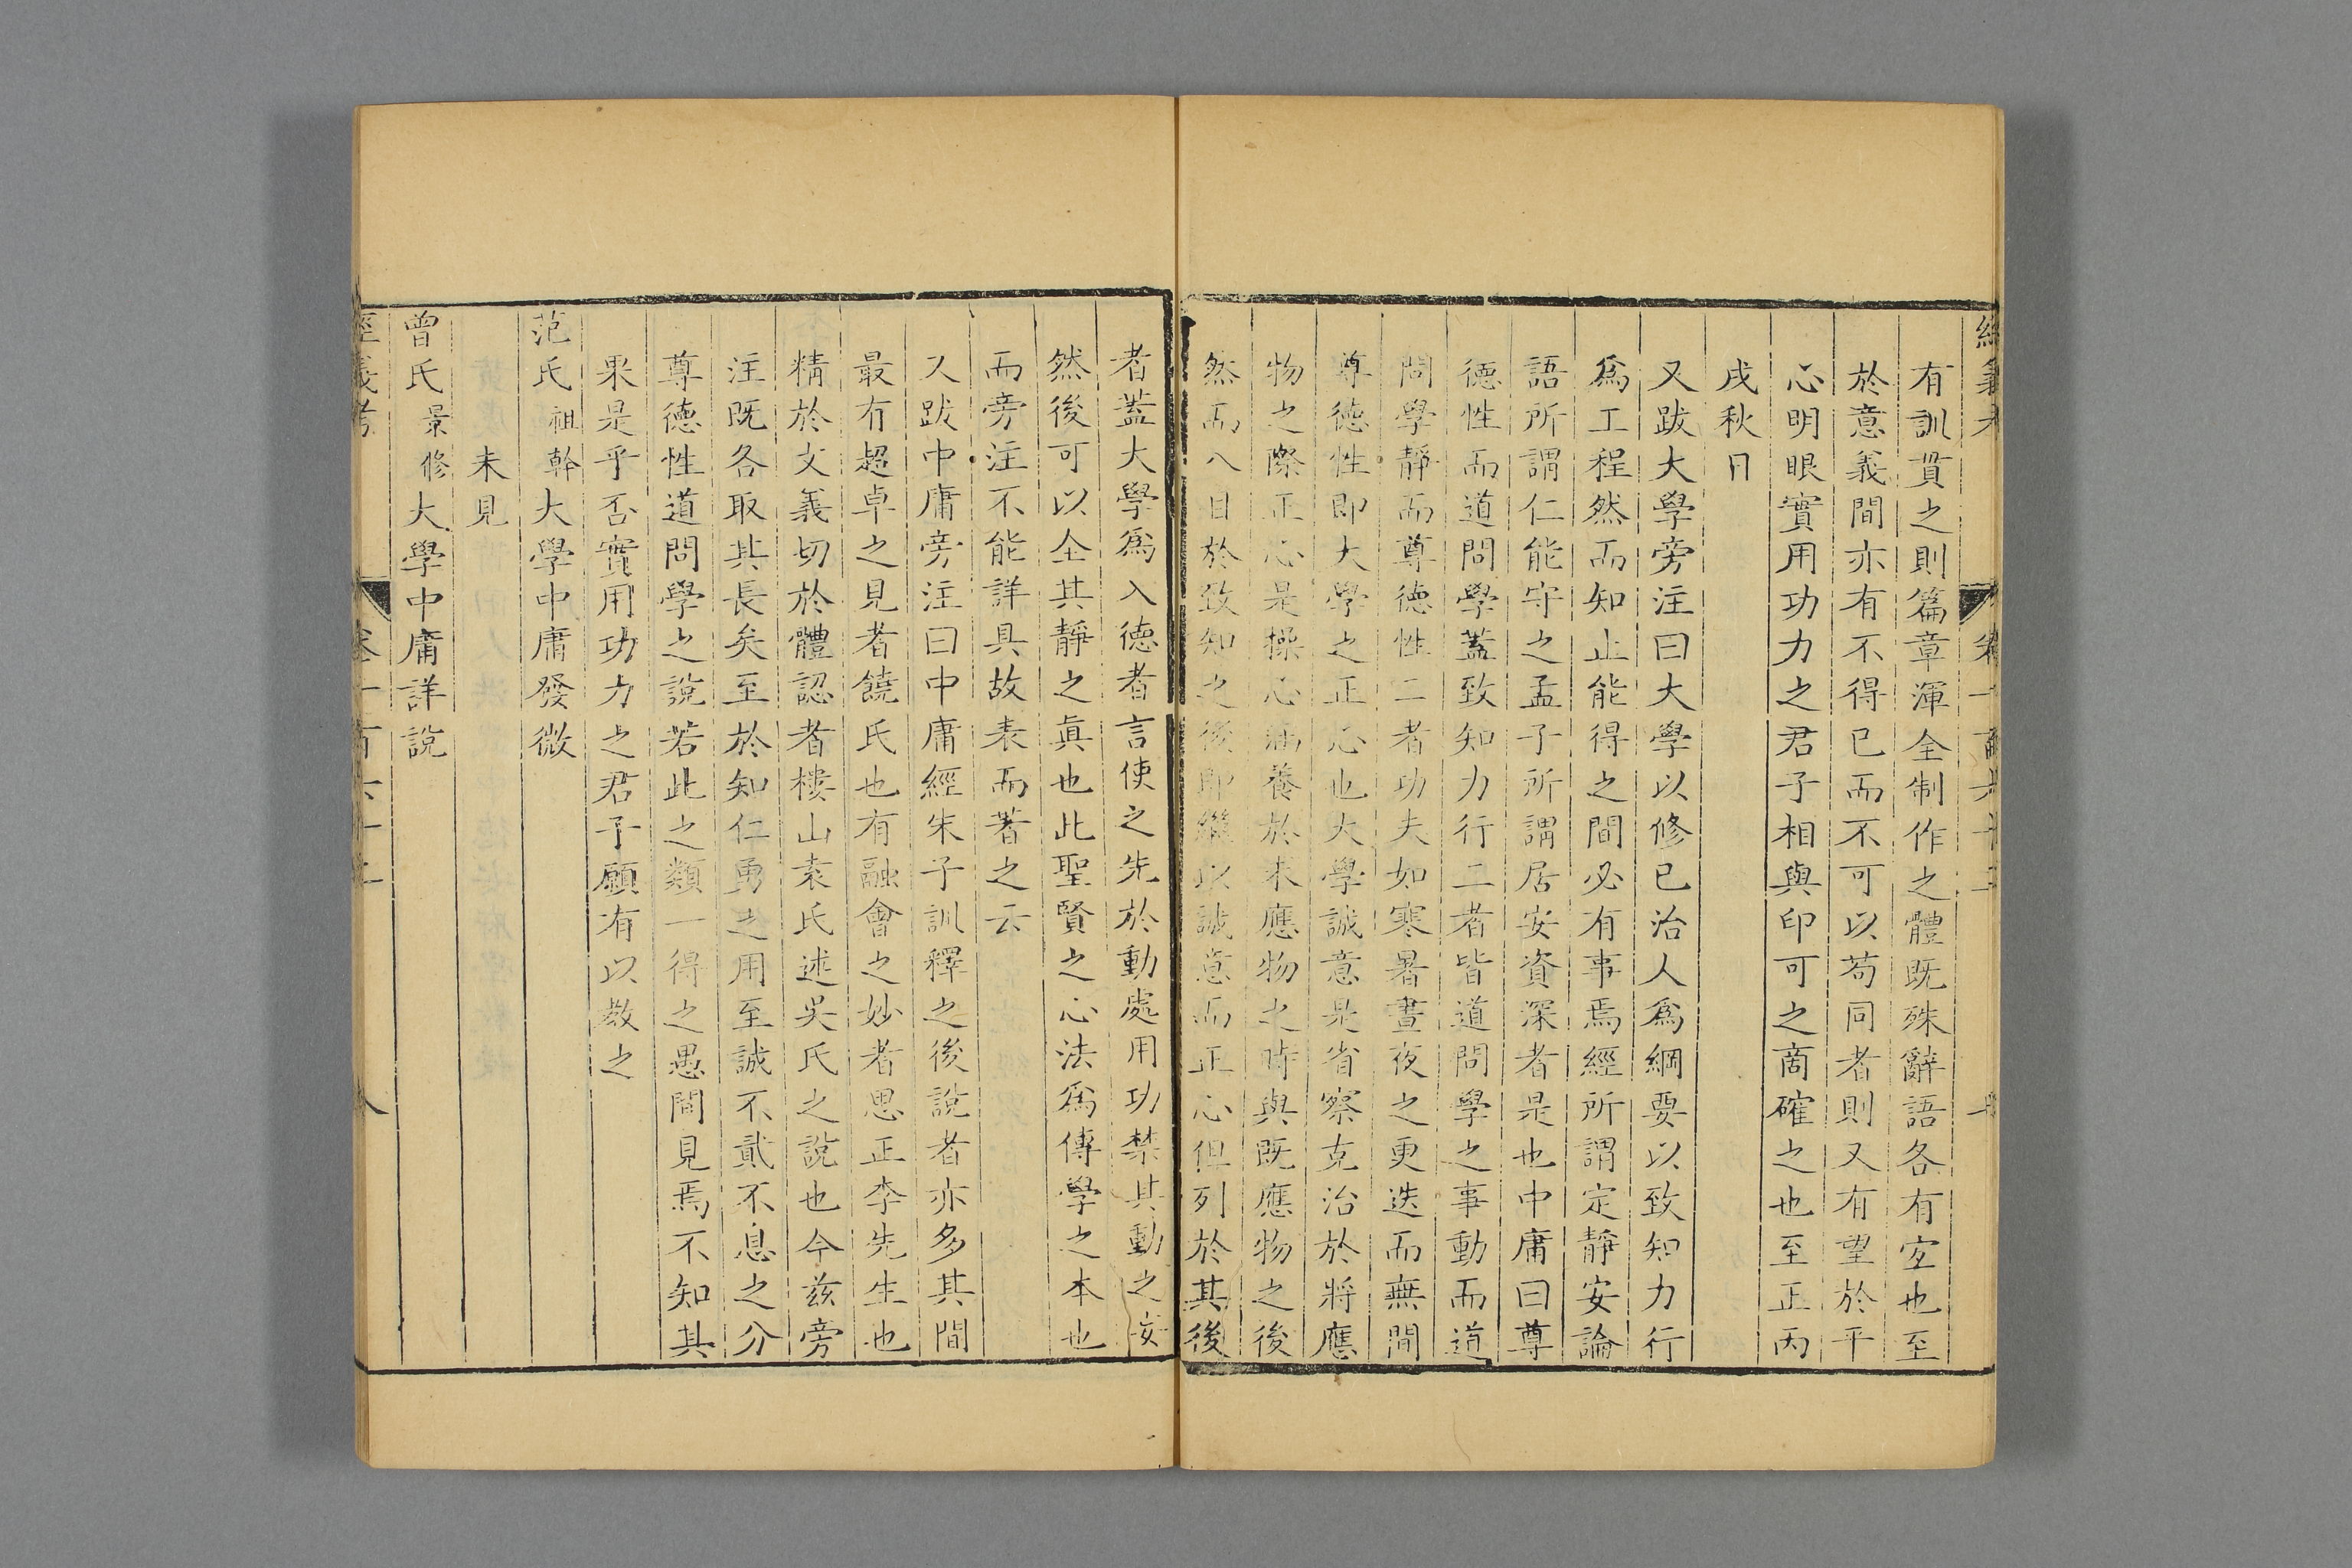 有訓貫之則篇章渾全制作之體既殊辭語各有宐也至
於意義間亦有不得已而不可以苟同者則又有望於平
心明眼實用功力之君子相與印可之商確之也至正丙
戌秋日
又跋大學旁注曰大學以修已治人爲綱要以致知力行
爲工程然而知止能得之間必有事焉經所謂定靜安論
語所謂仁能守之孟子所謂居安資深者是也中庸曰尊
德性而道問學蓋致知力行二者皆道問學之事動而道
問學靜而尊德性二者功夫如寒暑晝夜之更迭而無間
尊德性即大學之正心也大學誠意是省察克治於將應
物之際正心是操心涵養於未應物之時與既應物之後
然而八目於致知之後即繼以誠意而正心但列於其後
者蓋大學爲入德者言使之先於動處用功禁其動之妄
然後可以全其靜之眞也此聖賢之心法爲傳學之本也
而旁注不能詳具故表而著之云
又跋中庸旁注曰中庸經朱子訓釋之後說者亦多其間
最有超卓之見者饒氏也有融會之妙者思正李先生也
精於文義切於體認者樓山袁氏述吳氏之說也今兹旁
注既各取其長矣至於知仁勇之用至誠不貳不息之分
尊德性道問學之說若此之類一得之愚間見焉不知其
果是乎否實用功力之君子願有以教之
范氏祖幹大學中庸發微
未見
曾氏景修大學中庸詳說
經義考 卷一百六十二 八